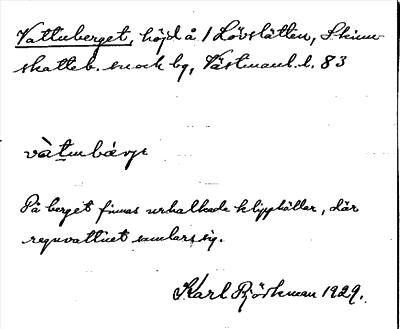 Vattuberget, höjd å 1 Lövslätten, Skinn-
skatteb. sn och bg, Västmanl. l. 83
vàtubárjı
På berget finnas urhalkade klipphällar, där
regnvattnet samlar sig.
Karl Björkman 1929.